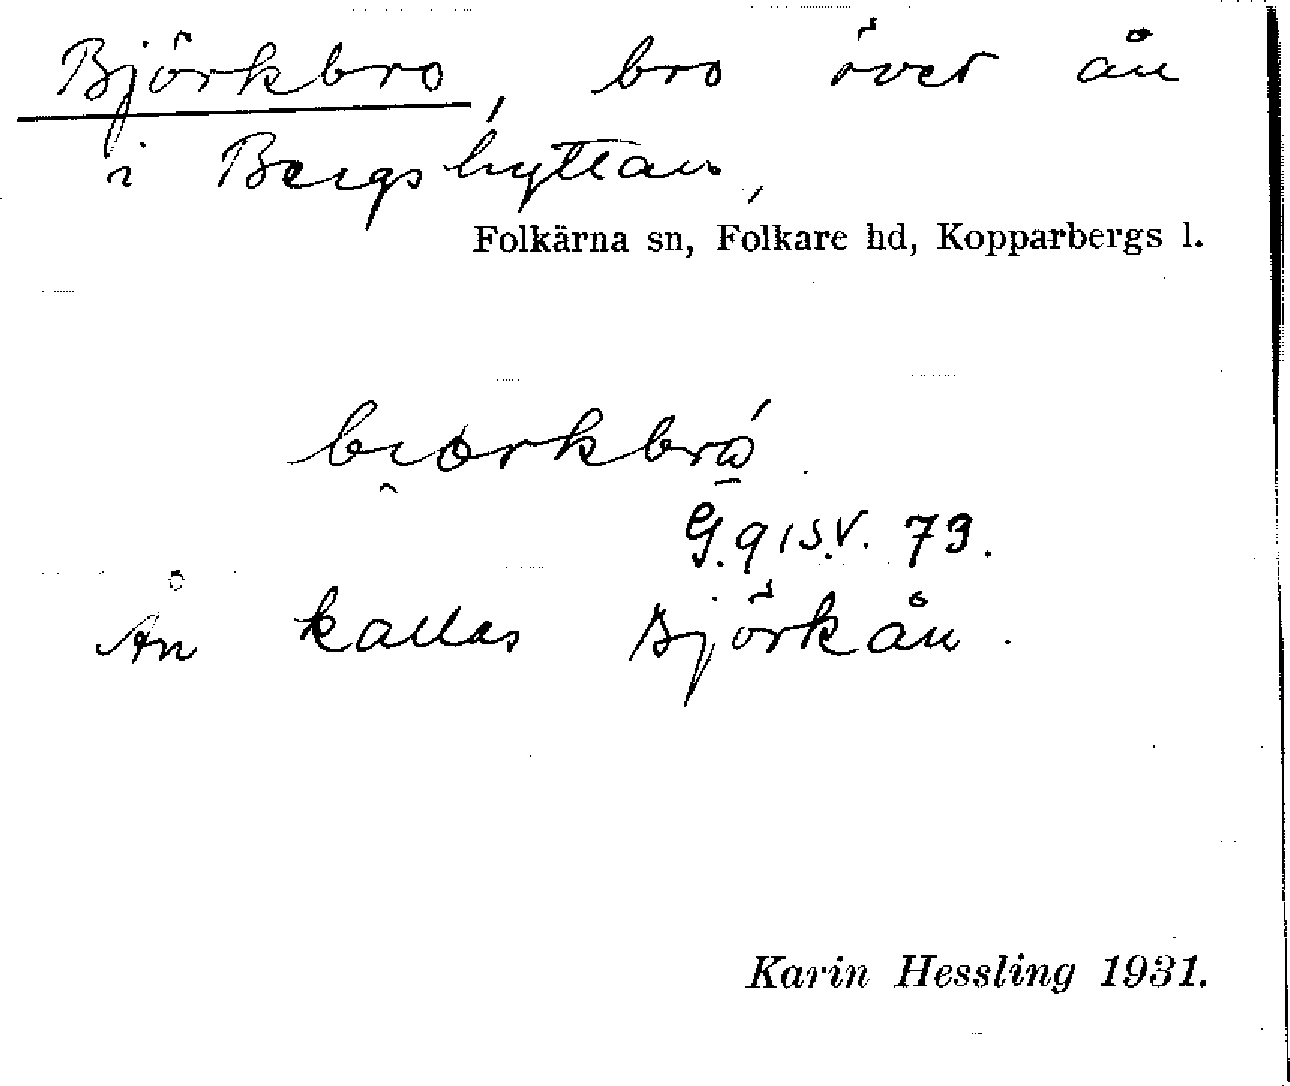 Björkbro, bro över ån
i Bergshyttan,
Folkärna sn, Folkare hd, Kopparbergs l.
bi̯orkbró̱
G. 9 15.V. 79.
Ån kallas Björkån.
Karin Hessling 1931.